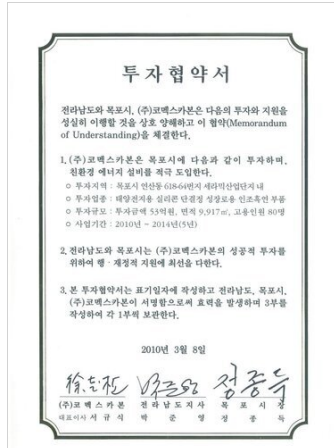 투자협약서
전라남도와 목포시, (주)코멕스카본은 다음의 투자와 지원을
성실히 이행할 것을 상호 양해하고 이 협약(Memorandum
of Understanding)을 체결한다.
1. (주)코멕스카본은 목포시에 다음과 같이 투자하며,
친환경 에너지 설비를 적극 도입한다.
○ 투자지역 : 목포시 연산동 618-64번지 세라믹산업단지 내
○ 투자업종 : 태양전지용 실리콘 단결정 성장로용 인조흑연 부품
○ 투자규모 : 투자금액 53억원, 면적 9,917㎡, 고용인원 80명
○ 사업기간 : 2010년 ~ 2014년(5년)
2. 전라남도와 목포시는 (주)코멕스카본의 성공적 투자를
위하여 행·재정적 지원에 최선을 다한다.
3. 본 투자협약서는 표기일자에 작성하고 전라남도, 목포시,
(주)코멕스카본이 서명함으로써 효력을 발생하며 3부를
작성하여 각 1부씩 보관한다.
2010년 3월 8일
정종득
(주)코멕스카본 전라남도지사 목포시장
대표이사 서규식 박준영 정종득